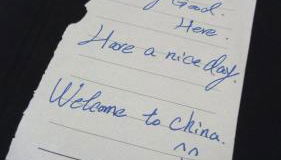 Good.
Here.
Have a nice day.
Welcome to China.
^^